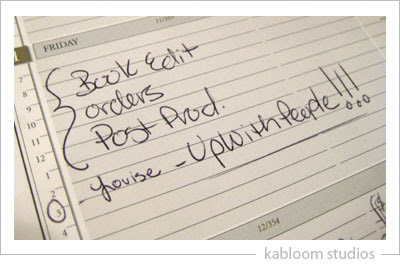 11/353
1
FRIDAY
7
8
9
10
11
12
1
2
3
4
Book Edit
orders
Post Prod.
Louise - UpWithPeople!!!
12/354
kabloom studios